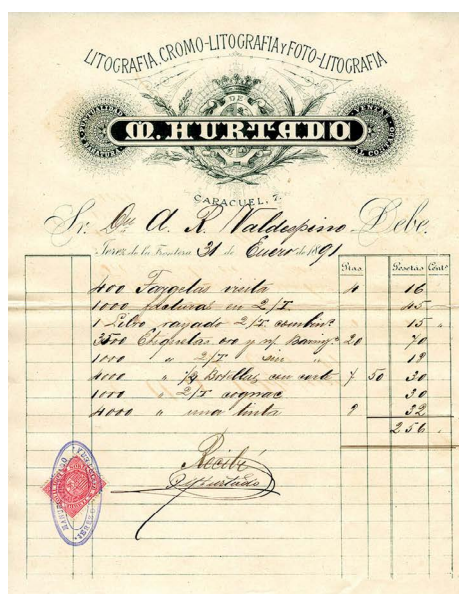 LITOGRAFIA, CROMO-LITOGRAFIA Y FOTO-LITOGRAFIA
DE
M. HURTADO
PUNTUALIDAD
BARATURA
VENTAS
AL CONTADO
CARACUEL, 7.
Sr. Dn A. R. Valdespino Debe.
Jerez de la Frontera 31 de Enero de 1891
Ptas Pesetas Cents
400 Targetas visita 4 16
1000 facturas en 2/T 45
1 Libro rayado 2/T 15 "
3500 Etiquetas oro y 20 70
1000 " 2/T sin " 18
4000 " 1/2 Botellas con corte 7 50 30
1000 " 2/T cognac 30
4000 " una tinta 9 32
256 "
Recibí
M Hurtado